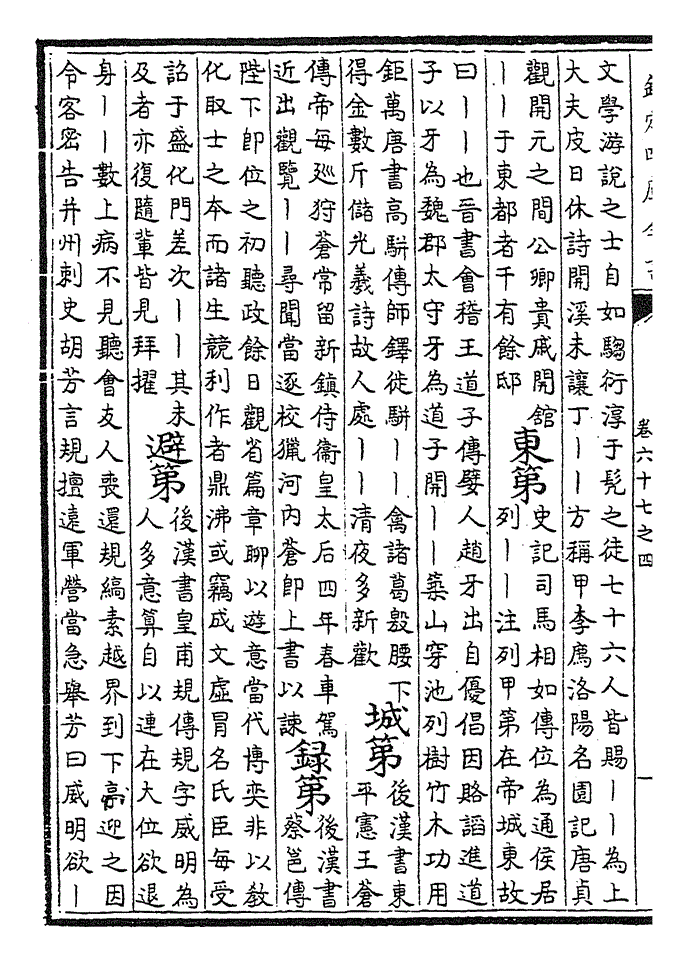 欽定四庫全書
卷六十七之四
一
文學游說之士自如騶衍淳于髡之徒七十六人皆賜丨丨為上
大夫皮日休詩開溪未讓丁丨丨方稱甲李廌洛陽名園記唐貞
觀開元之間公卿貴戚開舘
丨丨于東都者千有餘邸
東第
史記司馬相如傳位為通侯居
列丨丨注列甲第在帝城東故
曰丨丨也晉書會稽王道子傳嬖人趙牙出自優倡因賂諂進道
子以牙為魏郡太守牙為道子開丨丨築山穿池列樹竹木功用
鉅萬唐書高駢傳師鐸徙駢丨丨禽諸葛殷腰下
得金數斤儲光羲詩故人處丨丨清夜多新歡
城第
後漢書東
平憲王蒼
傳帝每廵狩蒼常留新鎮侍衞皇太后四年春車駕
近出觀覽丨丨尋聞當逐校獵河內蒼即上書以諫
録第
後漢書
蔡邕傳
陛下即位之初聽政餘日觀省篇章聊以遊意當代博奕非以敎
化取士之本而諸生競利作者鼎沸或竊成文虛冒名氏臣每受
詔于盛化門差次丨丨其未
及者亦復隨輩皆見拜擢
避第
後漢書皇甫規傳規字威明為
人多意算自以連在大位欲退
身丨丨數上病不見聽會友人喪還規縞素越界到下亭迎之因
令客密告并州刺史胡芳言規擅遠軍營當急舉芳曰威明欲丨